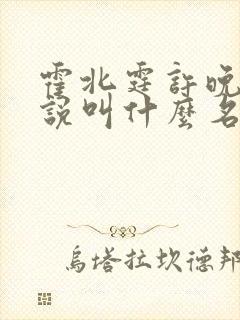 霍北霆許晚
說叫什麼名
烏塔拉坎德邦